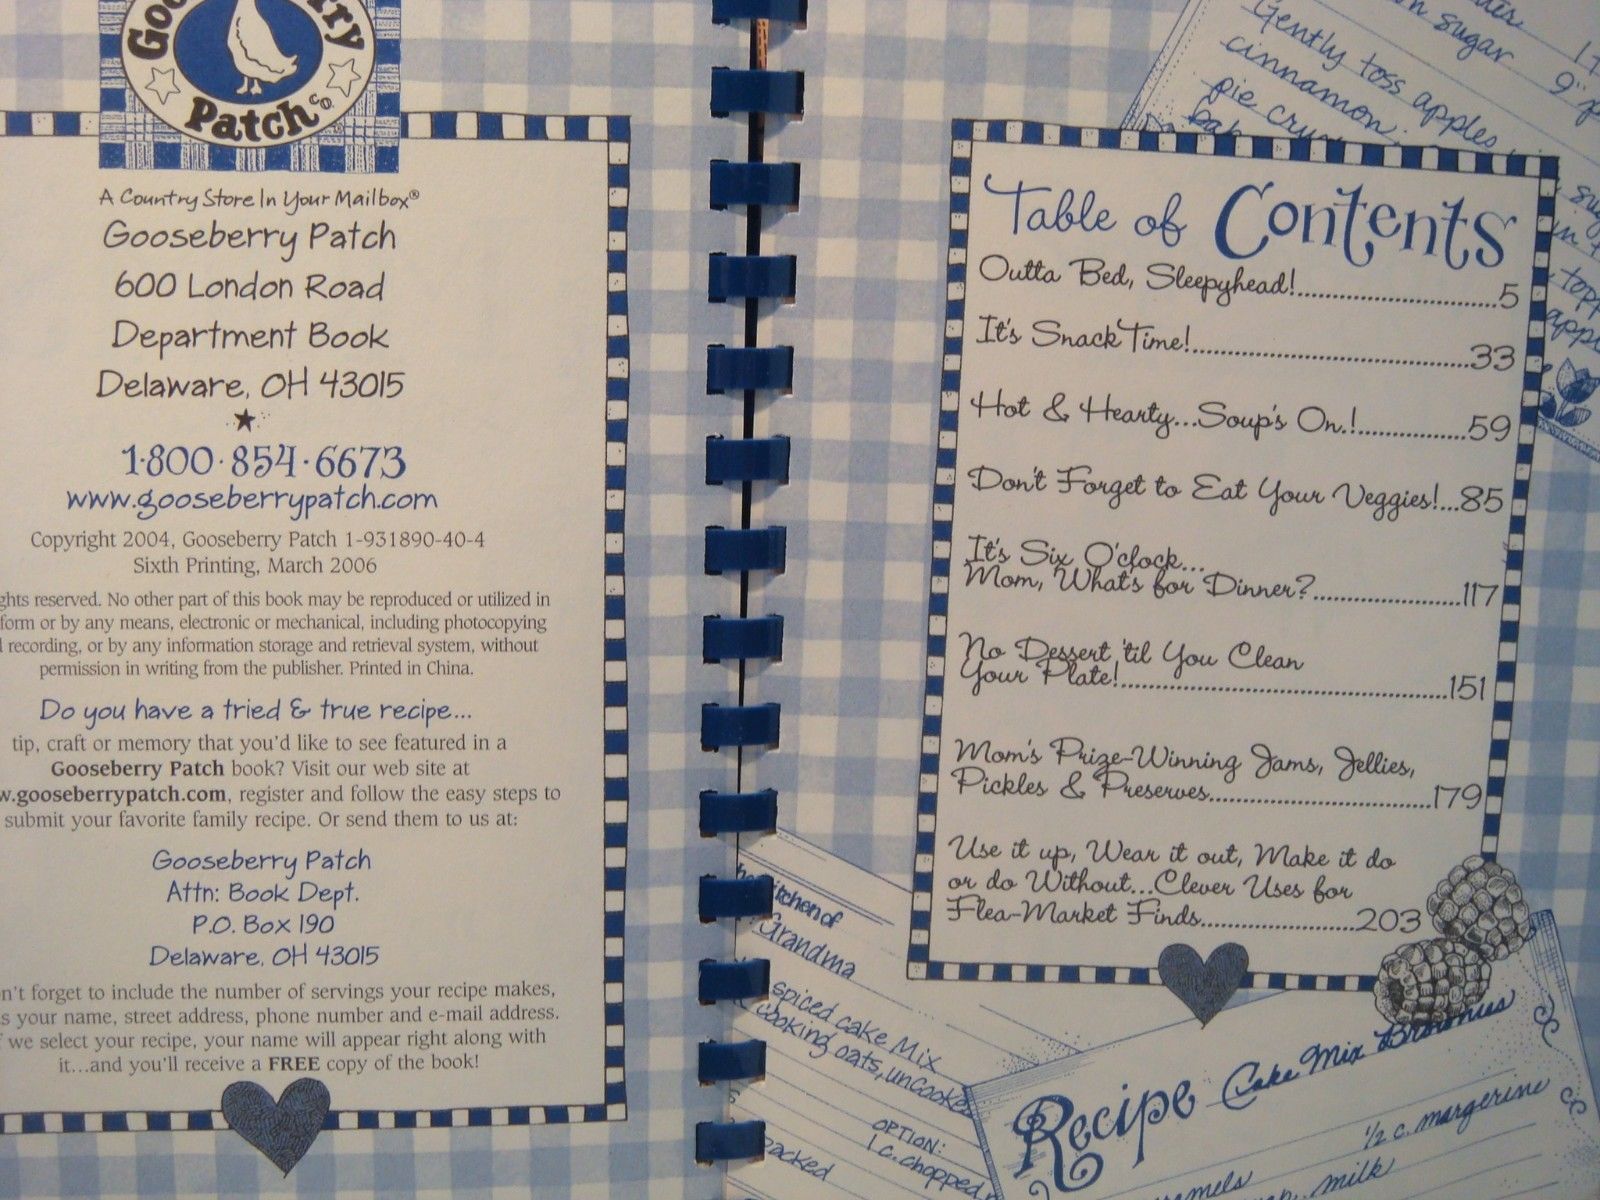 Patch Co.
A Country Store In Your Mailbox®
Gooseberry Patch
600 London Road
Department Book
Delaware, OH 43015
1·800·854·6673
www.gooseberrypatch.com
Copyright 2004, Gooseberry Patch 1-931890-40-4
Sixth Printing, March 2006
reserved. No other part of this book may be reproduced or utilized in
form or by any means, electronic or mechanical, including photocopying
recording, or by any information storage and retrieval system, without
permission in writing from the publisher. Printed in China.
Do you have a tried & true recipe...
tip, craft or memory that you'd like to see featured in a
Gooseberry Patch book? Visit our web site at
.gooseberrypatch.com, register and follow the easy steps to
submit your favorite family recipe. Or send them to us at:
Gooseberry Patch
Attn: Book Dept.
P.O. Box 190
Delaware, OH 43015
n't forget to include the number of servings your recipe makes,
your name, street address, phone number and e-mail address.
we select your recipe, your name will appear right along with
it...and you'll receive a FREE copy of the book!
sugar
9"
Gently toss apples
cinnamon
pie
Table of Contents
Outta Bed, Sleepyhead!...5
It's Snack Time!...33
Hot & Hearty...Soup's On!...59
Don't Forget to Eat Your Veggies!...85
It's Six O'clock...
Mom, What's for Dinner?...117
No Dessert 'til You Clean
Your Plate!...151
Mom's Prize-Winning Jams, Jellies,
Pickles & Preserves...179
Use it up, Wear it out, Make it do
or do Without...Clever Uses for
Flea-Market Finds...203
kitchen of
Grandma
spiced cake mix
cooking oats, uncooked
OPTION:
1 c. chopped
packed
Recipe Cake Mix Brownies
1/2 c. margerine
milk